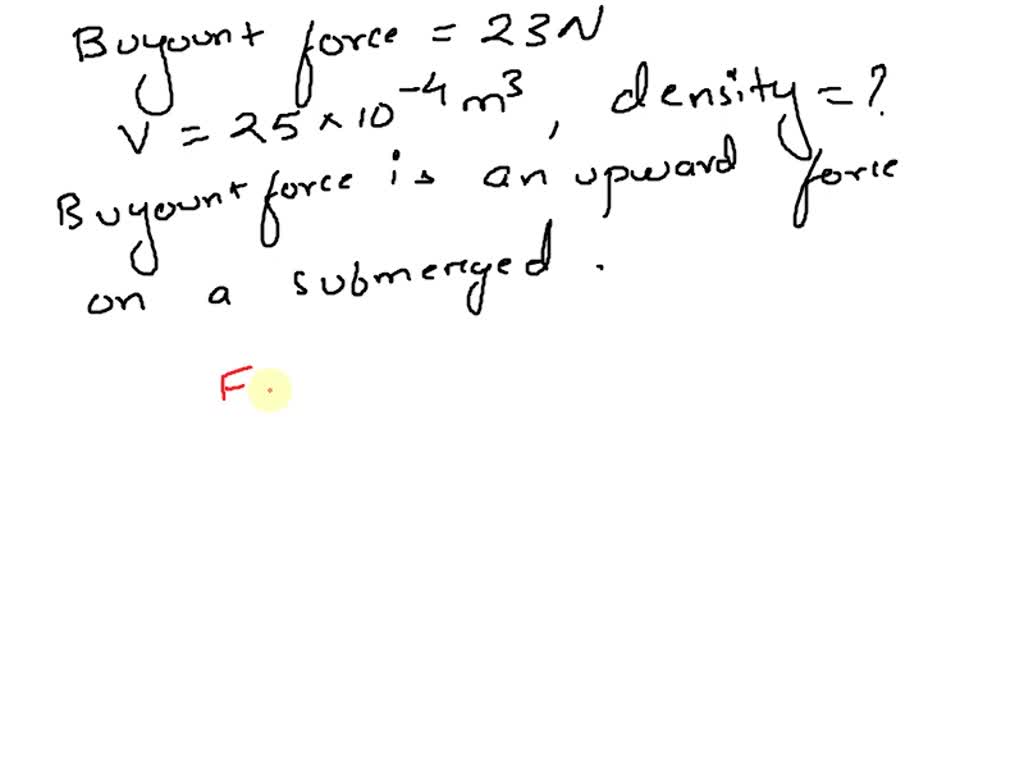 Buyount force = 23N
V = 25 × 10⁻⁴ m³, density = ?
Buyount force is an upward force
on a submerged.
F